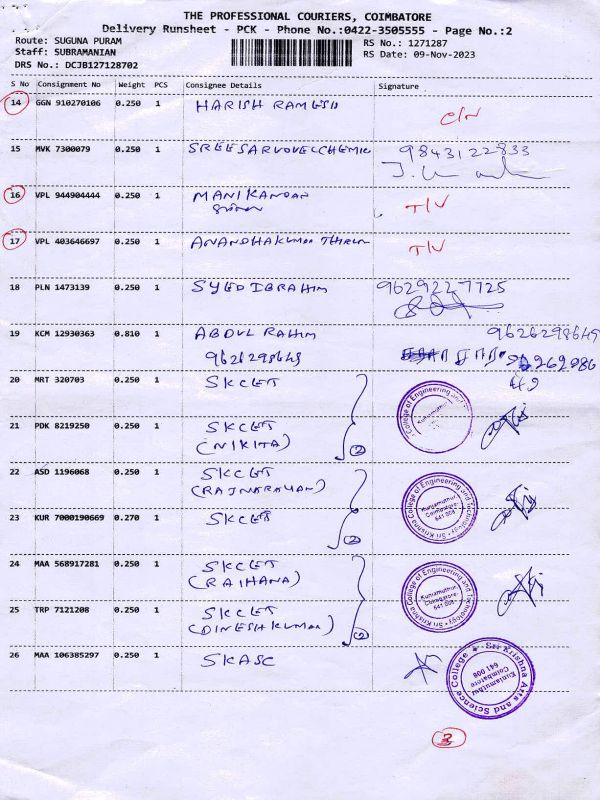 THE PROFESSIONAL COURIERS, COIMBATORE
Delivery Runsheet - PCK - Phone No.:0422-3505555 - Page No.:2
Route: SUGUNA PURAM RS No.: 1271287
Staff: SUBRAMANIAN RS Date: 09-Nov-2023
DRS No.: DCJB127128702
S No Consignment No Weight PCS Consignee Details Signature
14 GGN 910270106 0.250 1 HARISH RAMESH
15 MVK 7300079 0.250 1 9843122833
16 VPL 944904444 0.250 1 MANIKANDAN T/V
17 VPL 403646697 0.250 1 T/V
18 PLN 1473139 0.250 1 SYED IBRAHIM 9629227725
19 KCM 12930363 0.810 1 ABDUL RAHIM 9626298649
9626298649
20 MRT 320703 0.250 1 SKCET
21 PDK 8219250 0.250 1 SKCET
(NIKITA) 2
22 ASD 1196068 0.250 1 SKCET
(RAJNARAYAN)
23 KUR 7000190669 0.270 1 SKCET 2
24 MAA 568917281 0.250 1 SKCET
(RAIHANA)
25 TRP 7121208 0.250 1 SKCET
(DINESHKUMAR) 2
26 MAA 106385297 0.250 1 SKASC
College of Engineering and
Kuniamuthur
Sri Krishna College of Engineering and Technology
Kuniamuthur,
Coimbatore-
641 008
Sri Krishna College of Engineering and Technology
Kuniamuthur,
Coimbatore-
641 008
Sri Krishna Arts and Science College
Kuniamuthur
Coimbatore
641 008
3